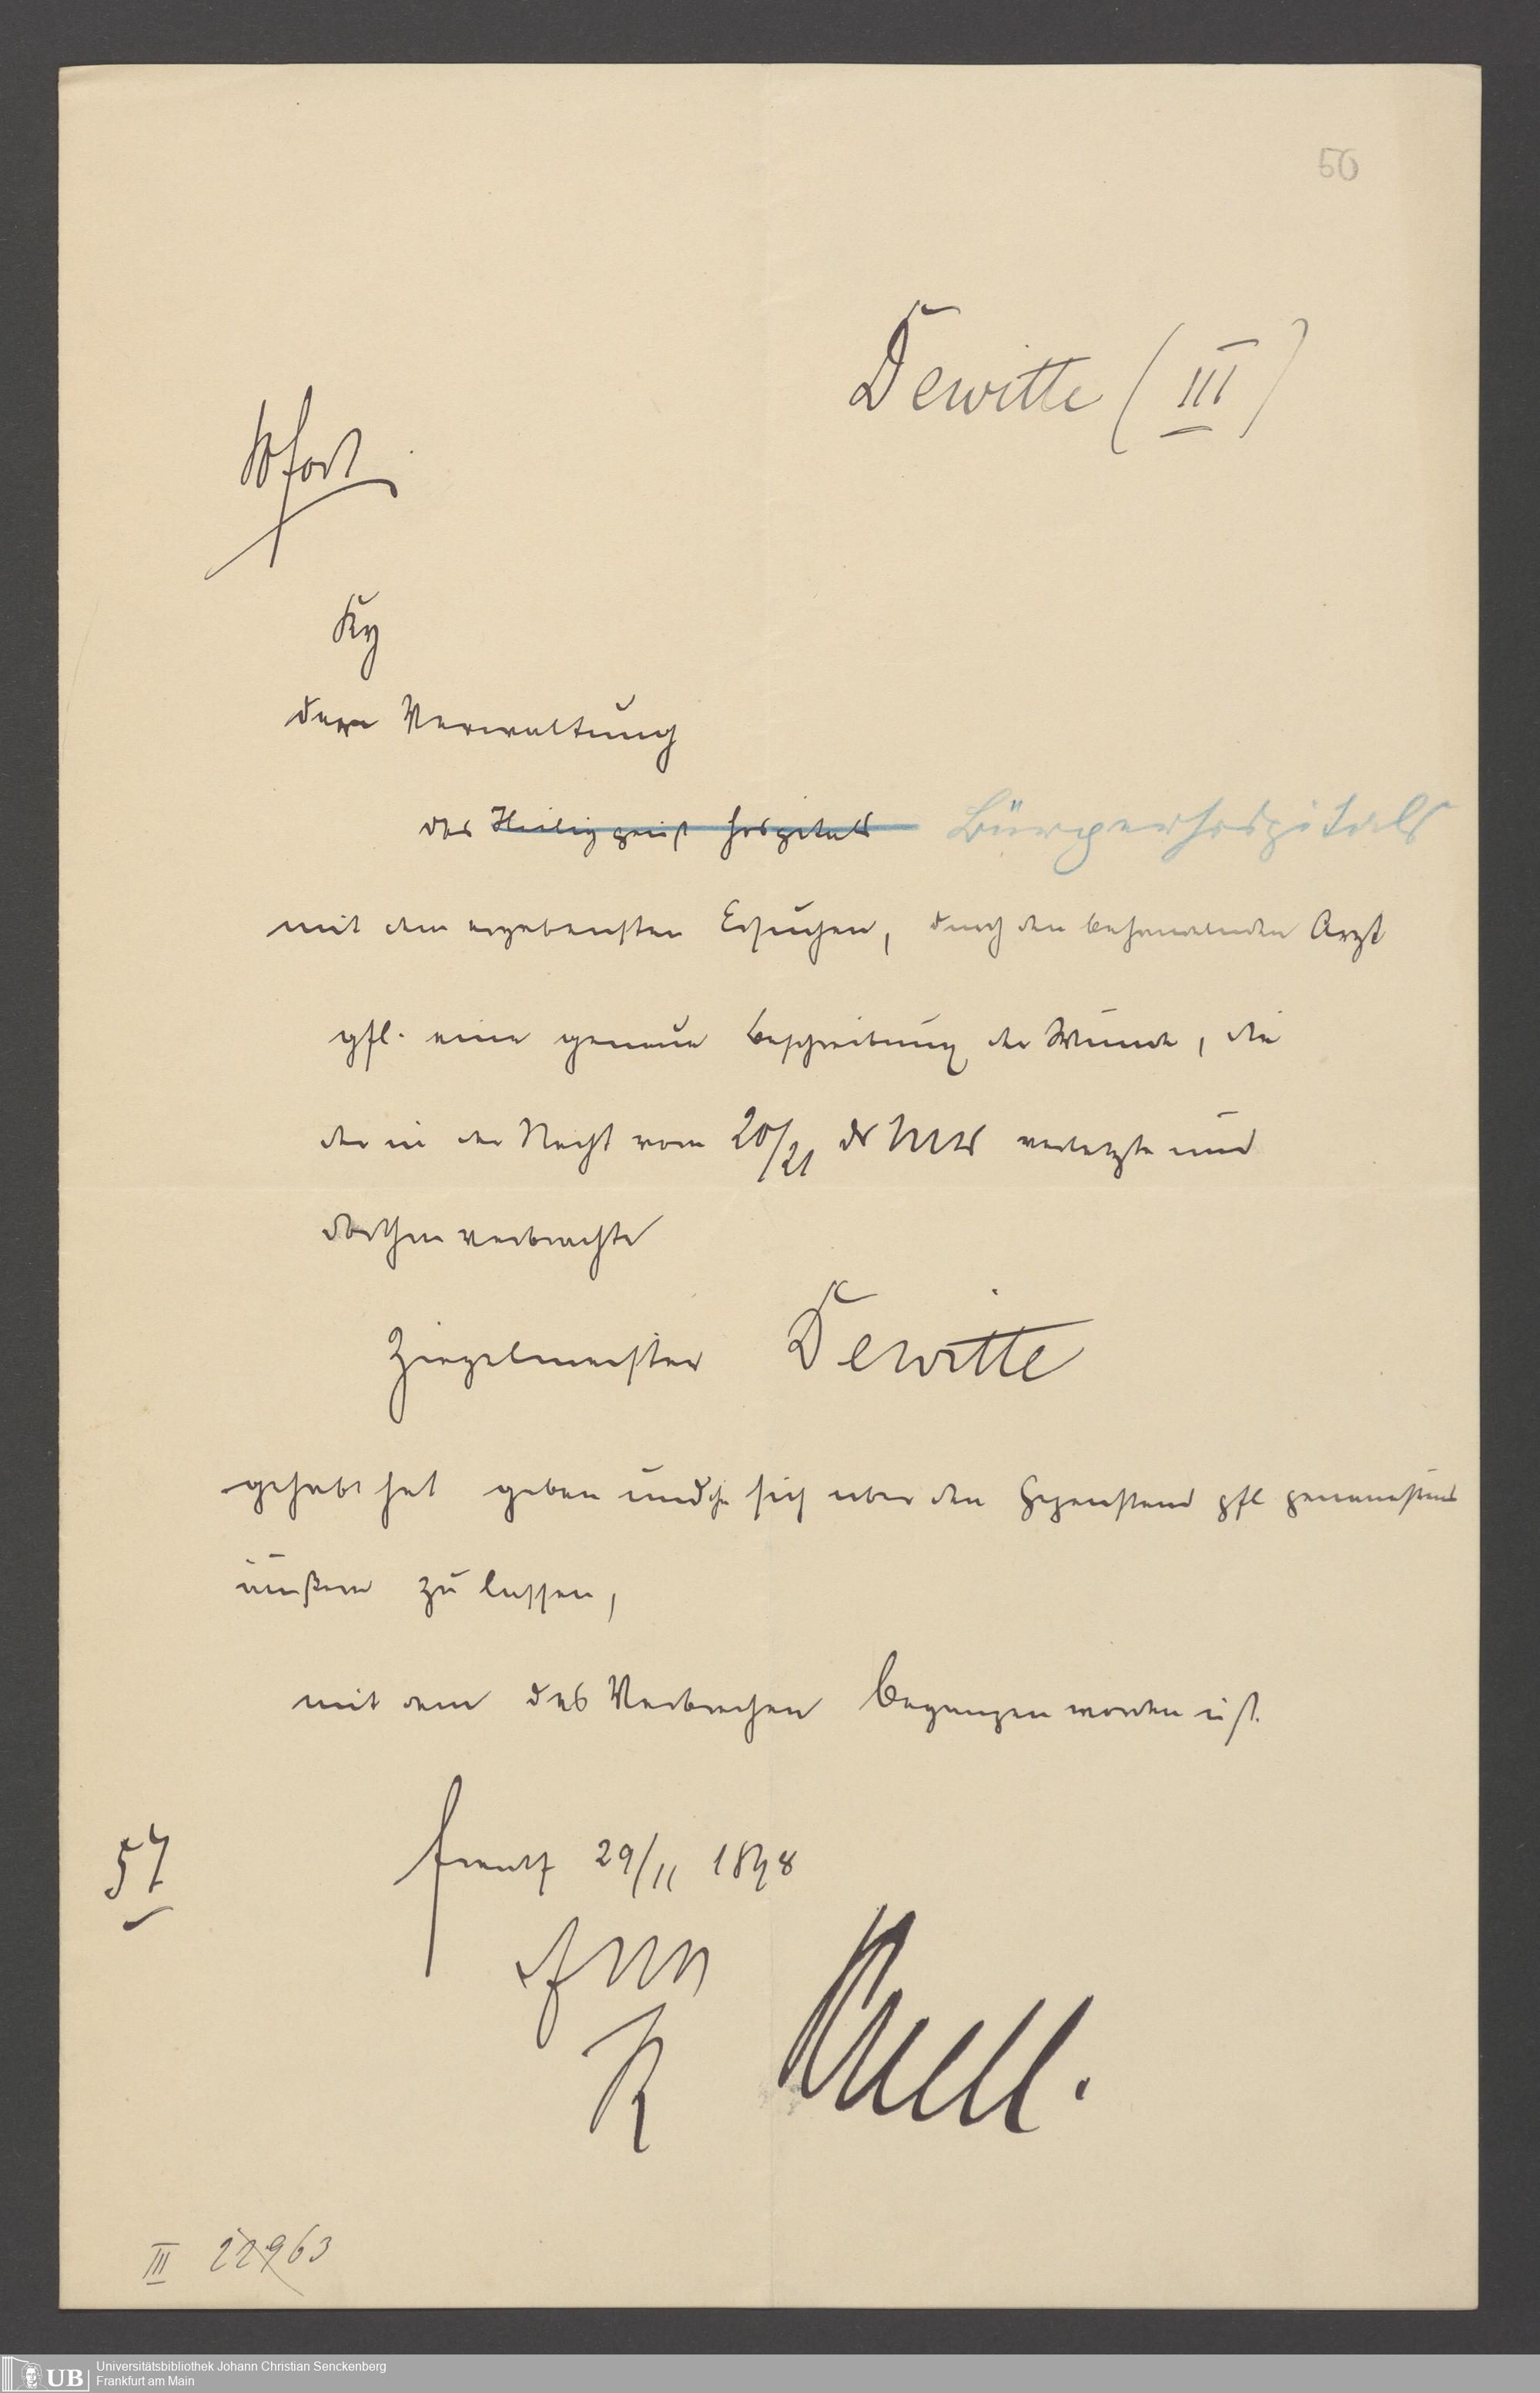 50
Dewitte (III)
Sofort
der Verwaltung
des Heiliggeist hospitals Bürgerhospitals
mit dem ergebensten Ersuchen, durch den behandelnden Arzt
gfl. eine genaue Beschreibung der Wunde, die
der in der Nacht vom 20/21 ds Mts verletzte und
dorthin verbrachte
Ziegelmeister Dewitte
gehabt hat geben und sich über den Gegenstand gfl
äußern zu lassen,
mit dem das Verbrechen begangen worden ist.
57
Frankf 29/11 1898
III 22963
Universitätsbibliothek Johann Christian Senckenberg
Frankfurt am Main
UB